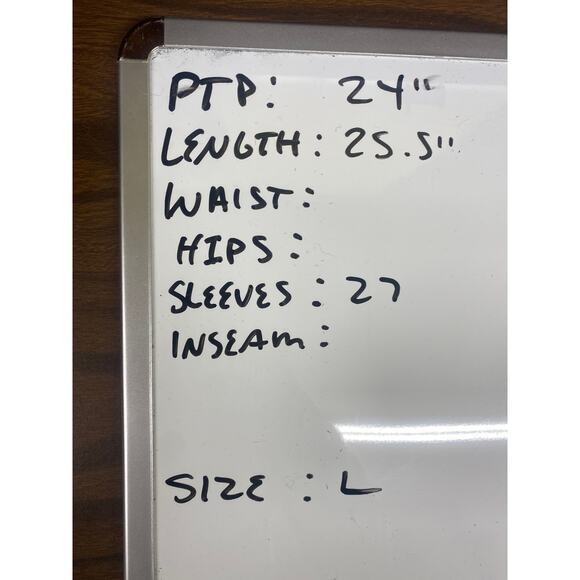 PTP: 24"
LENGTH: 25.5"
WAIST:
HIPS:
SLEEVES: 27
INSEAM:
SIZE: L